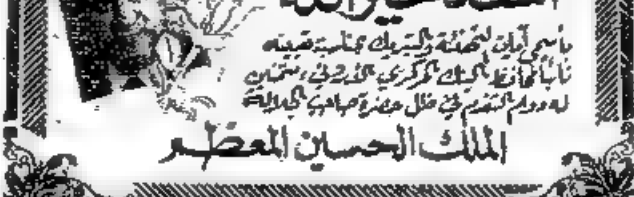 بأسمى آيات التهنئة والتبريك بمناسبة تعيينه
نائباً لمحافظ البنك المركزي الأردني، متمنين
له دوام التقدم في ظل حضرة صاحب الجلالة
الملك الحسين المعظم